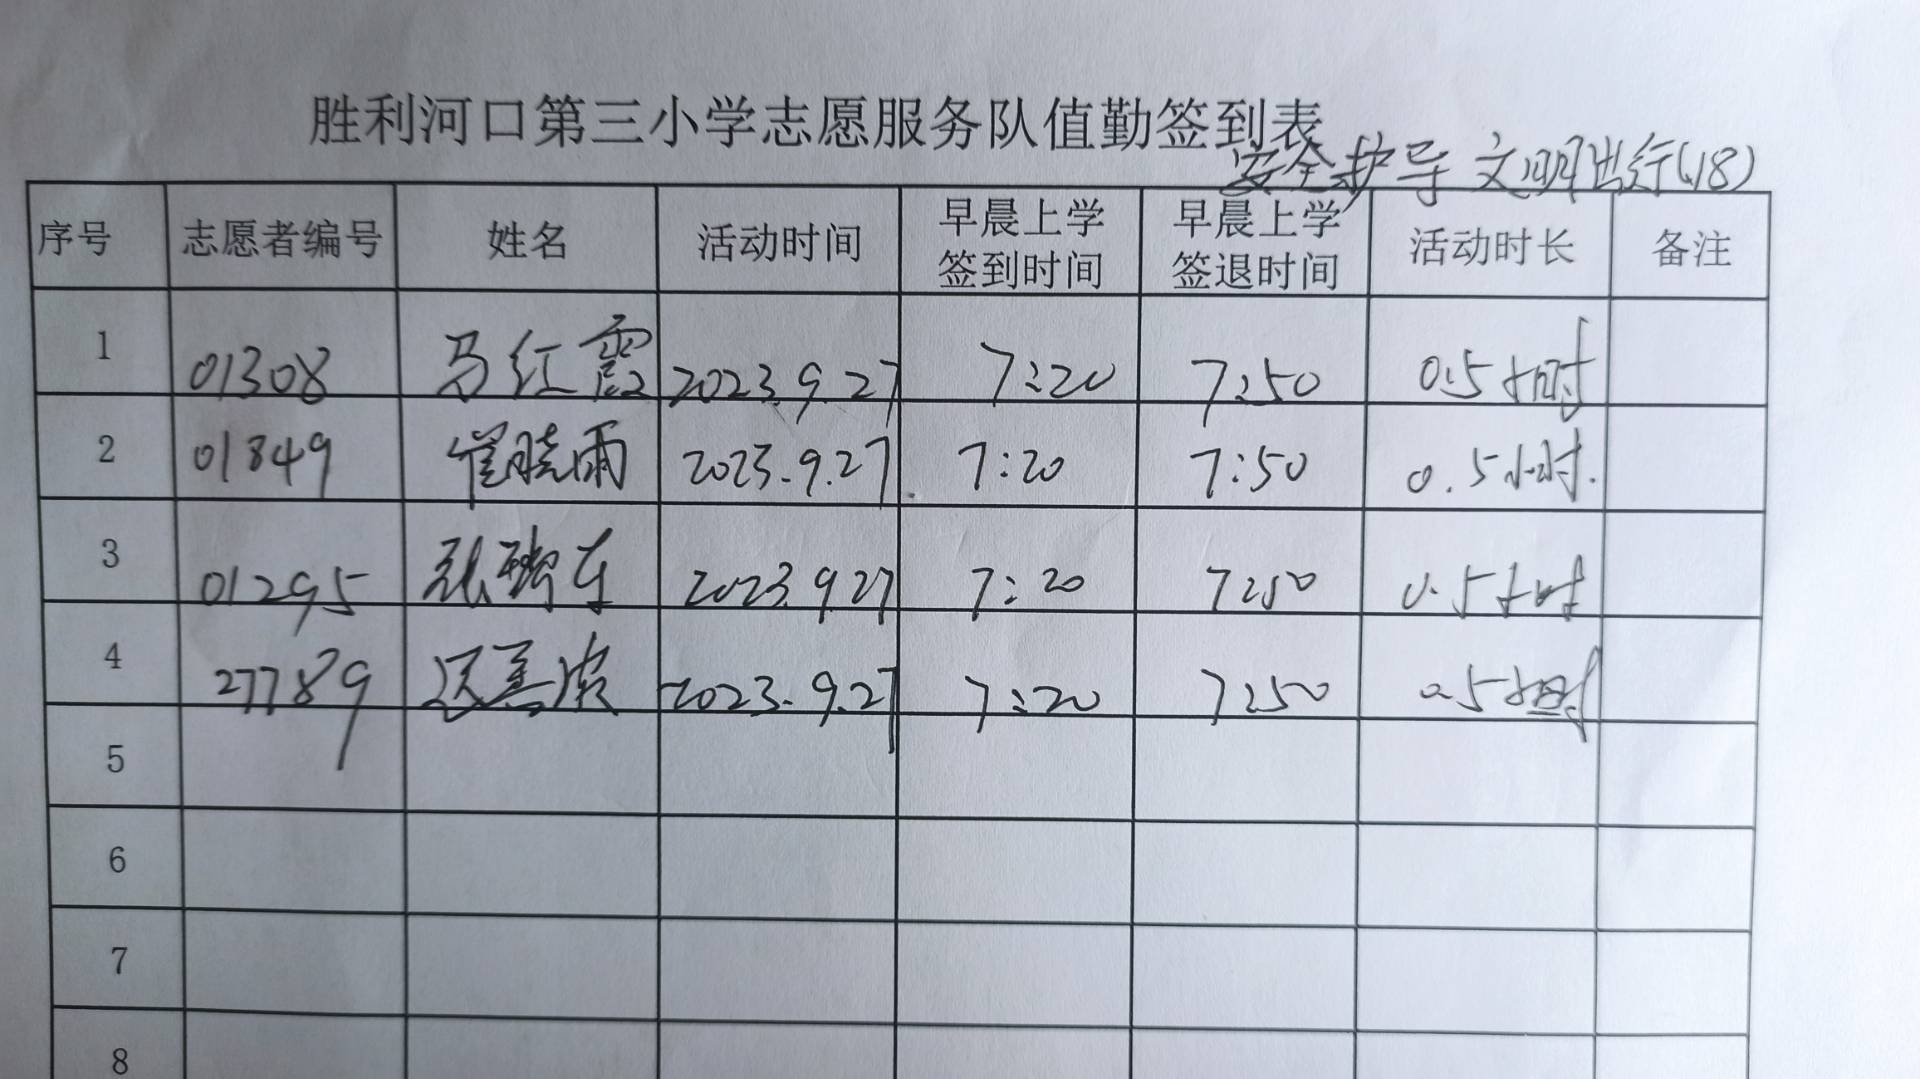 胜利河口第三小学志愿服务队值勤签到表
安全护导 文明出行(18)
序号 志愿者编号 姓名 活动时间 早晨上学签到时间 早晨上学签退时间 活动时长 备注
1 01308 马红霞 2023.9.27 7:20 7:50 0.5小时
2 01849 崔晓雨 2023.9.27 7:20 7:50 0.5小时.
3 01295 张 东 2023.9.27 7:20 7:50 0.5小时
4 27789 2023.9.27 7:20 7:50 0.5小时
5
6
7
8